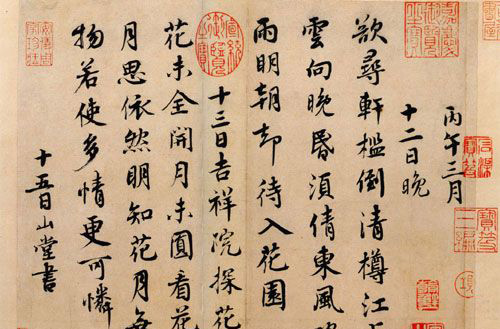 嘉慶御覽之寶
宣統御覽之寶
丙午三月
十二日晚
欲尋軒檻倒清樽江
雲向晚昏須倩東風
雨明朝却待入花園
十三日吉祥院探花
花未全開月未圓看花
月思依然明知花月無
物若使多情更可憐
十五日山堂書